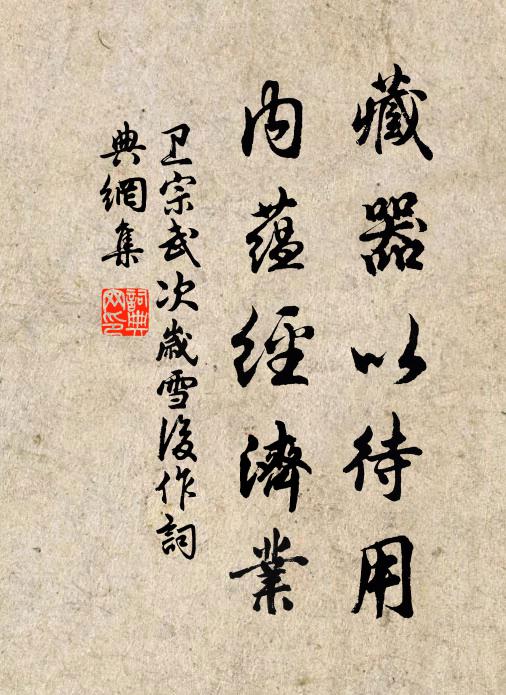 藏器以待用
内蕴經濟業
卫宗武次歲雪後作詞
典網集
詞典网印